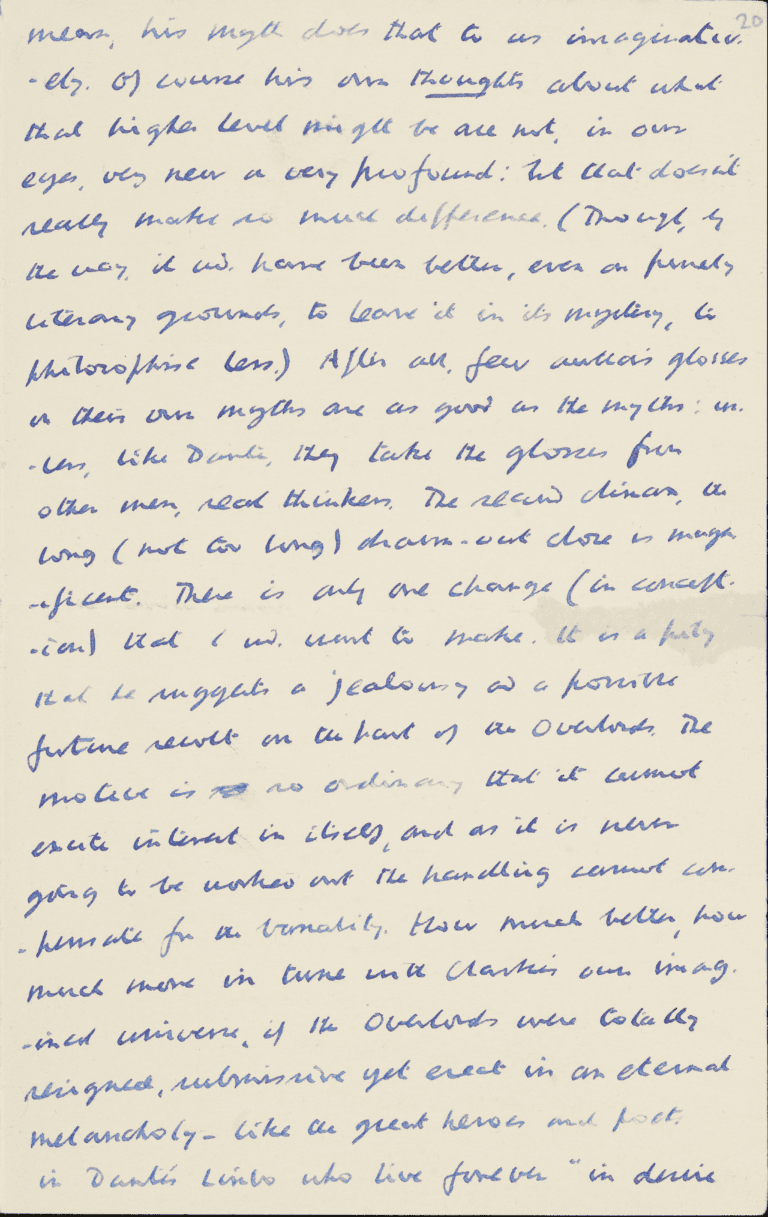 20
means, his myth does that to us imaginativ-
-ely. Of course his own thoughts about what
that higher level might be are not, in our
eyes, very new or very profound: but that doesn't
really make so much difference. (Though, by
the way, it wd. have been better, even on purely
literary grounds, to leave it in its mystery, to
philosophise less.) After all, few authors' glosses
on their own myths are as good as the myths: un-
-less, like Dante, they take the glosses from
other men, real thinkers. The second climax, the
long (not too long) drawn-out close is magn-
-ificent. There is only one change (in concept-
-ion) that I wd. want to make. It is a pity
that he suggests a jealousy and a possible
future revolt on the part of the Overlords. The
motive is so ordinary that it cannot
excite interest in itself, and as it is never
going to be worked out the handling cannot com-
-pensate for the banality. How much better, how
much more in tune with Clarke's own imag-
-ined universe, if the Overlords were totally
resigned, submissive yet erect in an eternal
melancholy – like the great heroes and poets
in Dante's Limbo who live forever "in desire